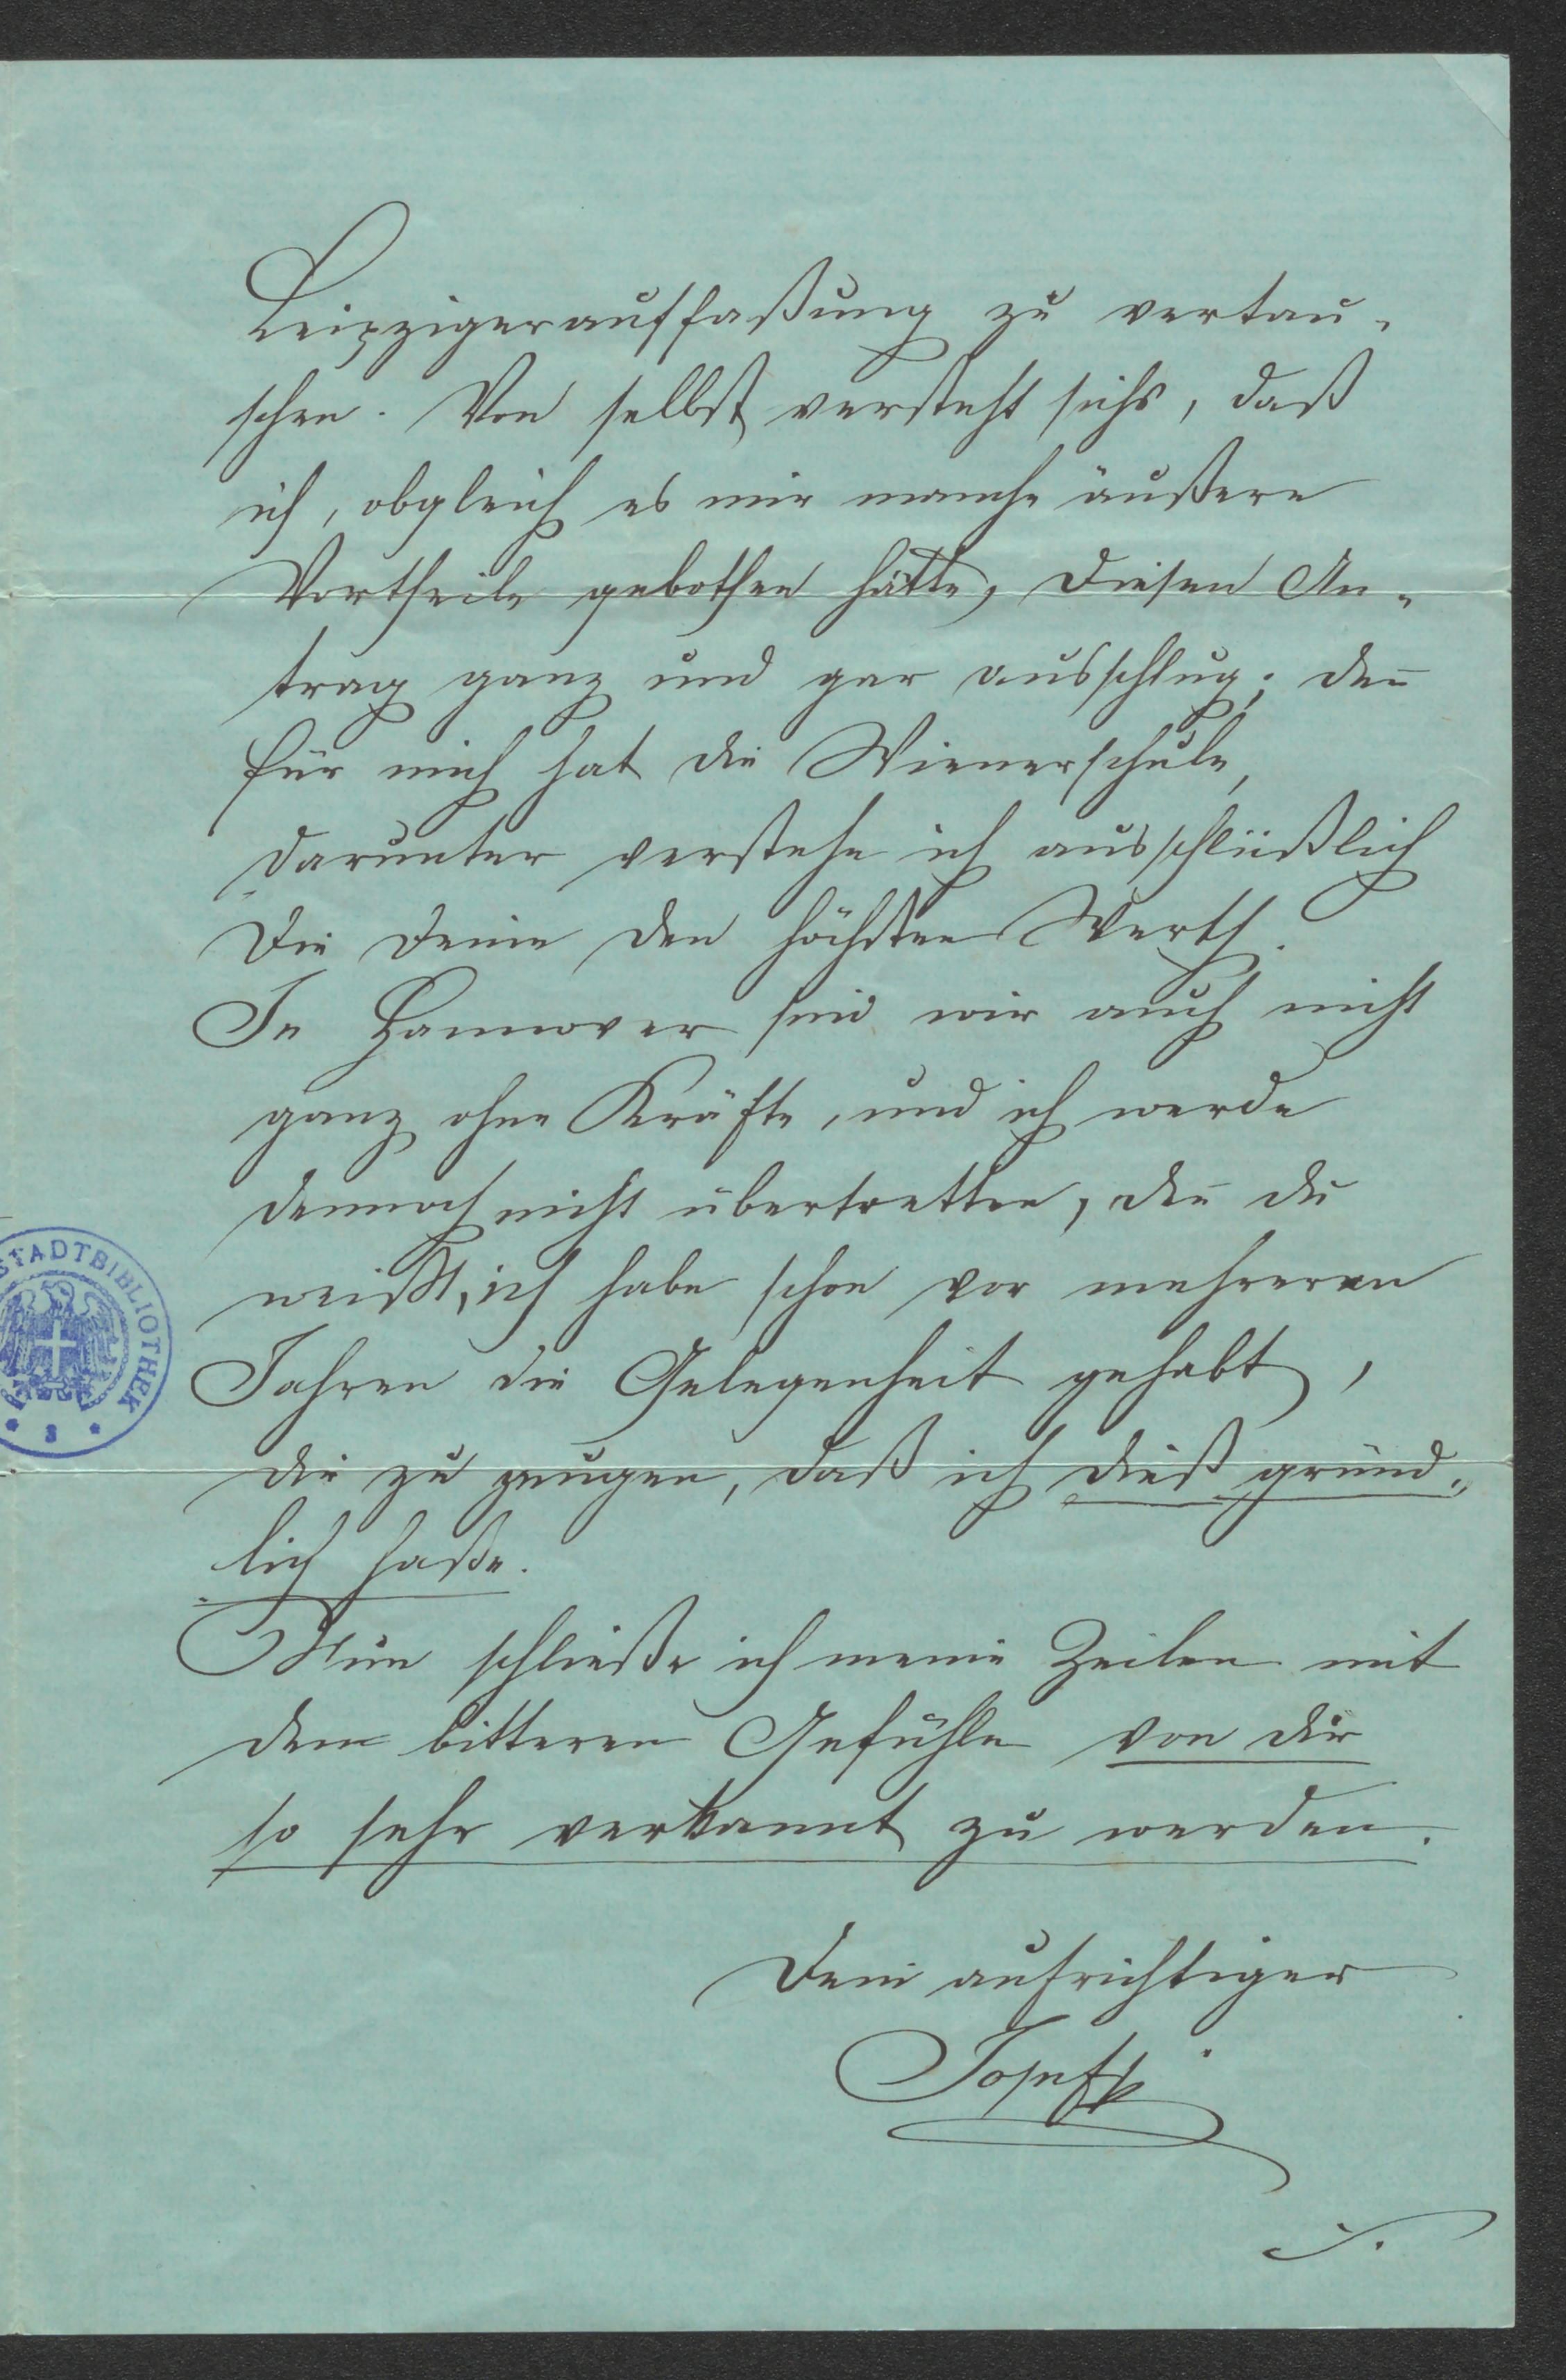 Leipzigerauffaßung zu vertau-
schen. Von selbst versteht sichs, daß
ich, obgleich es mir manche äußere
Vortheile gebothen hätte, diesen An-
trag ganz und gar ausschlug; den̄
für mich hat die Wienerschule,
darunter verstehe ich ausschließlich
die Deine den höchsten Werth.
In Hannover sind wir auch nicht
ganz ohne Kräfte, und ich werde
dennoch nicht übertretten, den̄ du
weißt, ich habe schon vor mehreren
Jahren die Gelegenheit gehabt,
dir zu zeugen, daß ich dieß gründ-
lich haße.
STADTBIBLIOTHEK
Nun schließe ich meine Zeilen mit
dem bitteren Gefühle von dir
so sehr verkannt zu werden.
Dein aufrichtiger
Josef